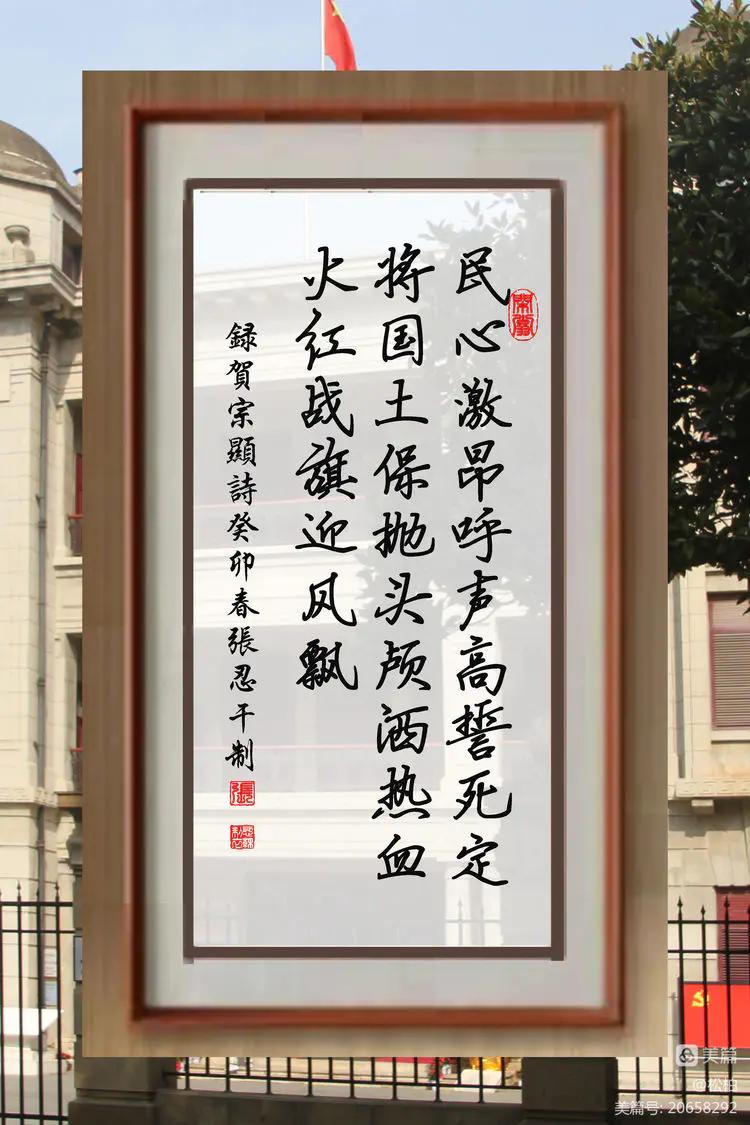 民心激昂呼声高誓死定
将国土保抛头颅洒热血
火红战旗迎风飘
録賀宗顯詩癸卯春張忍干制
張
美篇
@松柏
美篇号: 20658292